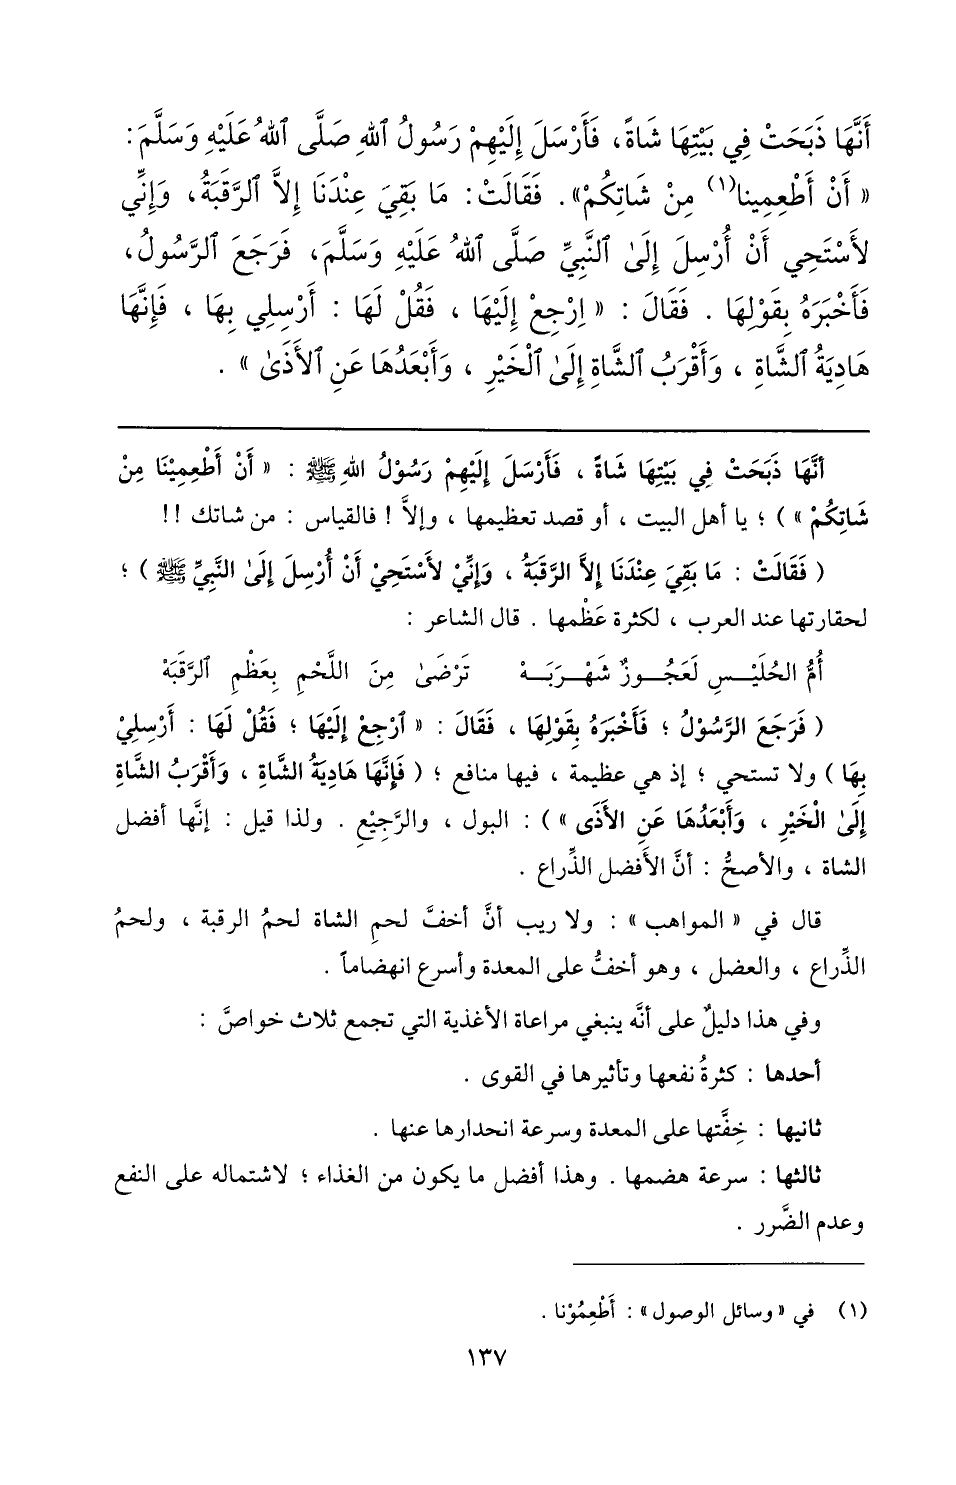 أَنَّهَا ذَبَحَتْ فِي بَيْتِهَا شَاةً، فَأَرْسَلَ إِلَيْهِمْ رَسُولُ ٱللهِ صَلَّى ٱللهُ عَلَيْهِ وَسَلَّمَ:
« أَنْ أَطْعِمِينا(١) مِنْ شَاتِكُمْ». فَقَالَتْ: مَا بَقِيَ عِنْدَنَا إِلاَّ ٱلرَّقَبَةُ، وَإِنِّي
لأَسْتَحِي أَنْ أُرْسِلَ إِلَىٰ ٱلنَّبِيِّ صَلَّى ٱللهُ عَلَيْهِ وَسَلَّمَ، فَرَجَعَ ٱلرَّسُولُ،
فَأَخْبَرَهُ بِقَوْلِهَا . فَقَالَ : « اِرْجِعْ إِلَيْهَا ، فَقُلْ لَهَا : أَرْسِلِي بِهَا ، فَإِنَّهَا
هَادِيَةُ ٱلشَّاةِ ، وَأَقْرَبُ ٱلشَّاةِ إِلَىٰ ٱلْخَيْرِ ، وَأَبْعَدُهَا عَنِ ٱلأَذَىٰ » .
أنَّهَا ذَبَحَتْ فِي بَيْتِهَا شَاةً ، فَأَرْسَلَ إِلَيْهِمْ رَسُوْلُ اللهِ ﷺ : « أَنْ أَطْعِمِيْنَا مِنْ
شَاتِكُمْ » ) ؛ يا أهل البيت ، أو قصد تعظيمها ، وإلاَّ ! فالقياس : من شاتك !!
( فَقَالَتْ : مَا بَقِيَ عِنْدَنَا إِلاَّ الرَّقَبَةُ ، وَإِنِّيْ لأَسْتَحِيْ أَنْ أُرْسِلَ إِلَىٰ النَّبِيِّ ﷺ ) ؛
لحقارتها عند العرب ، لكثرة عَظْمها . قال الشاعر :
أُمُّ الحُلَيْـــسِ لَعَجُــوزٌ شَهْــرَبَــهْ تَرْضَىٰ مِنَ اللَّحْمِ بِعَظْمِ ٱلرَّقَبَهْ
( فَرَجَعَ الرَّسُوْلُ ؛ فَأَخْبَرَهُ بِقَوْلِهَا ، فَقَالَ : « ٱرْجِعْ إِلَيْهَا ؛ فَقُلْ لَهَا : أَرْسِلِيْ
بِهَا ) ولا تستحي ؛ إذ هي عظيمة ، فيها منافع ؛ ( فَإِنَّهَا هَادِيَةُ الشَّاةِ ، وَأَقْرَبُ الشَّاةِ
إِلَىٰ الْخَيْرِ ، وَأَبْعَدُهَا عَنِ الأَذَى » ) : البول ، والرَّجِيْعِ . ولذا قيل : إنَّها أفضل
الشاة ، والأصحُّ : أنَّ الأفضل الذِّراع .
قال في « المواهب » : ولا ريب أنَّ أخفَّ لحمِ الشاة لحمُ الرقبة ، ولحمُ
الذِّراع ، والعضل ، وهو أخفُّ على المعدة وأسرع انهضاماً .
وفي هذا دليلٌ على أنَّه ينبغي مراعاة الأغذية التي تجمع ثلاث خواصَّ :
أحدها : كثرةُ نفعها وتأثيرها في القوى .
ثانيها : خِفَّتها على المعدة وسرعة انحدارها عنها .
ثالثها : سرعة هضمها . وهذا أفضل ما يكون من الغذاء ؛ لاشتماله على النفع
وعدم الضَّرر .
(١) في « وسائل الوصول » : أَطْعِمُوْنا .
١٣٧